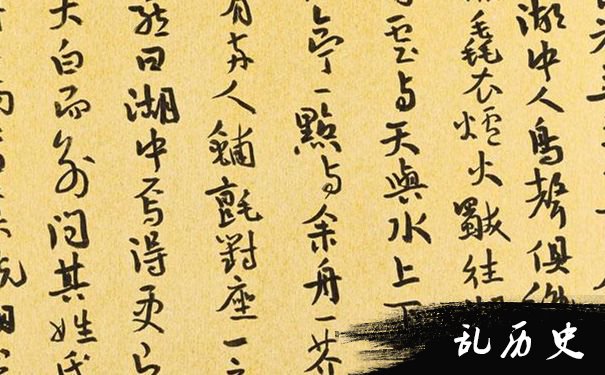 湖中人鳥聲俱絶
毳衣爐火獨往湖
雲与天與水上下
亭一點与余舟一芥
有兩人鋪氈對座一
曰湖中焉得更
大白而別問其姓氏
乱历史